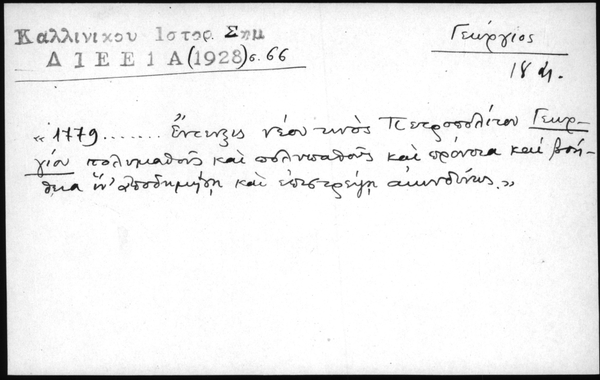 Καλλινικου Ιστορ. Σημ
Δ Ι Ε Ε 1 Α (1928) σ. 66
Γεώργιος
18 αι.
«1779....... Ἔντευξις νέου τινὸς Πετροπολίτου Γεωρ-
γίου πολυμαθοῦς καὶ πολυπαθοῦς καὶ πρόνοια καὶ βοή-
θεια ἵν' ἀποδημήσῃ καὶ ἐπιστρέψῃ ἀκινδύνως.»